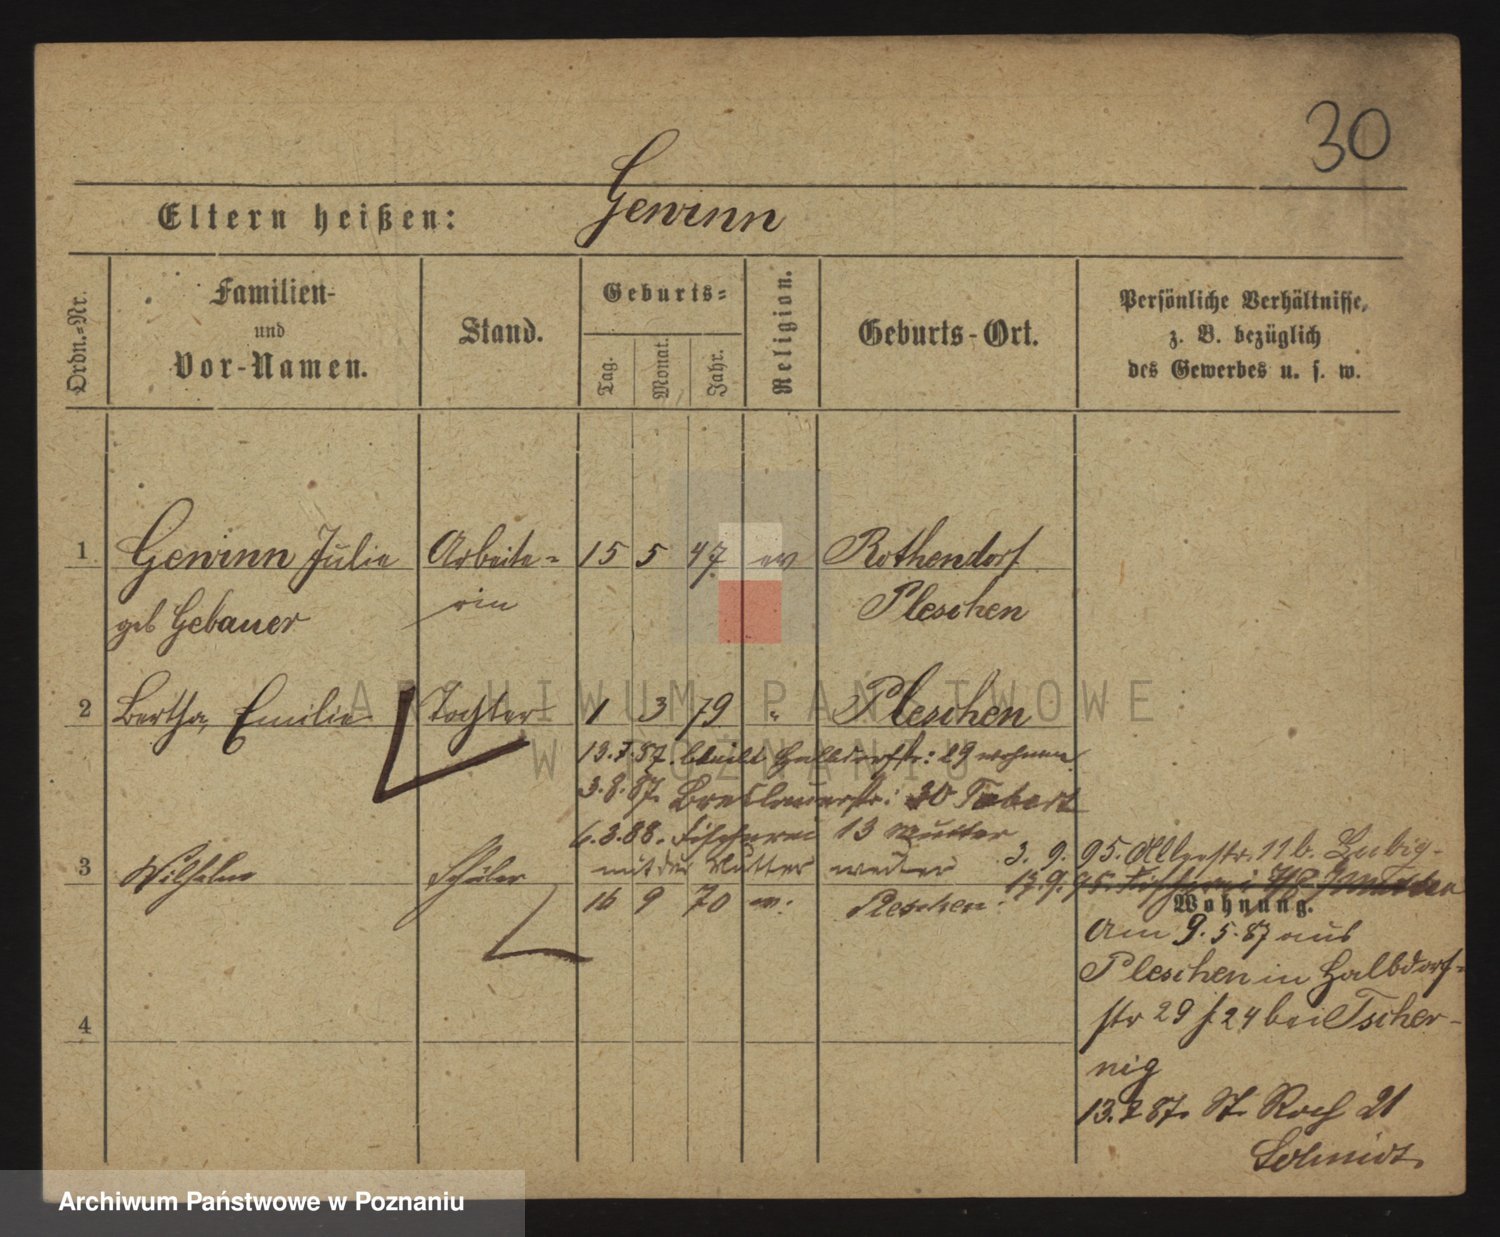 30
Eltern heißen: Gewinn
Ordn.-Nr.
Familien-
und
Vor-Namen.
Stand.
Geburts-
Tag.
Monat.
Jahr.
Religion.
Geburts-Ort.
Persönliche Verhältnisse,
z. B. bezüglich
des Gewerbes u. s. w.
1 Gewinn Julie Arbeite- 15 5 47 ev Rothendorf
geb Gebauer rin Pleschen
2 Bertha, Emilie Tochter 1 3 79 " Pleschen
13.7.87. bleibt Halbdorfstr: 29 wohnen
3.8.87. Breslauerstr: 30
6.3.88. Fischerei 13 Mutter
mit der Mutter
3. 9. 95. 11b.
3 Wilhelm Schüler
16 9 70 Pleschen.
Wohnung.
Am 9.5.87 aus
Pleschen in Halbdorf-
str 29 24 bei Tscher-
nig
13.7 87. St. Roch 21
Schmidt.
4
ARCHIWUM PAŃSTWOWE
W POZNANIU
Archiwum Państwowe w Poznaniu